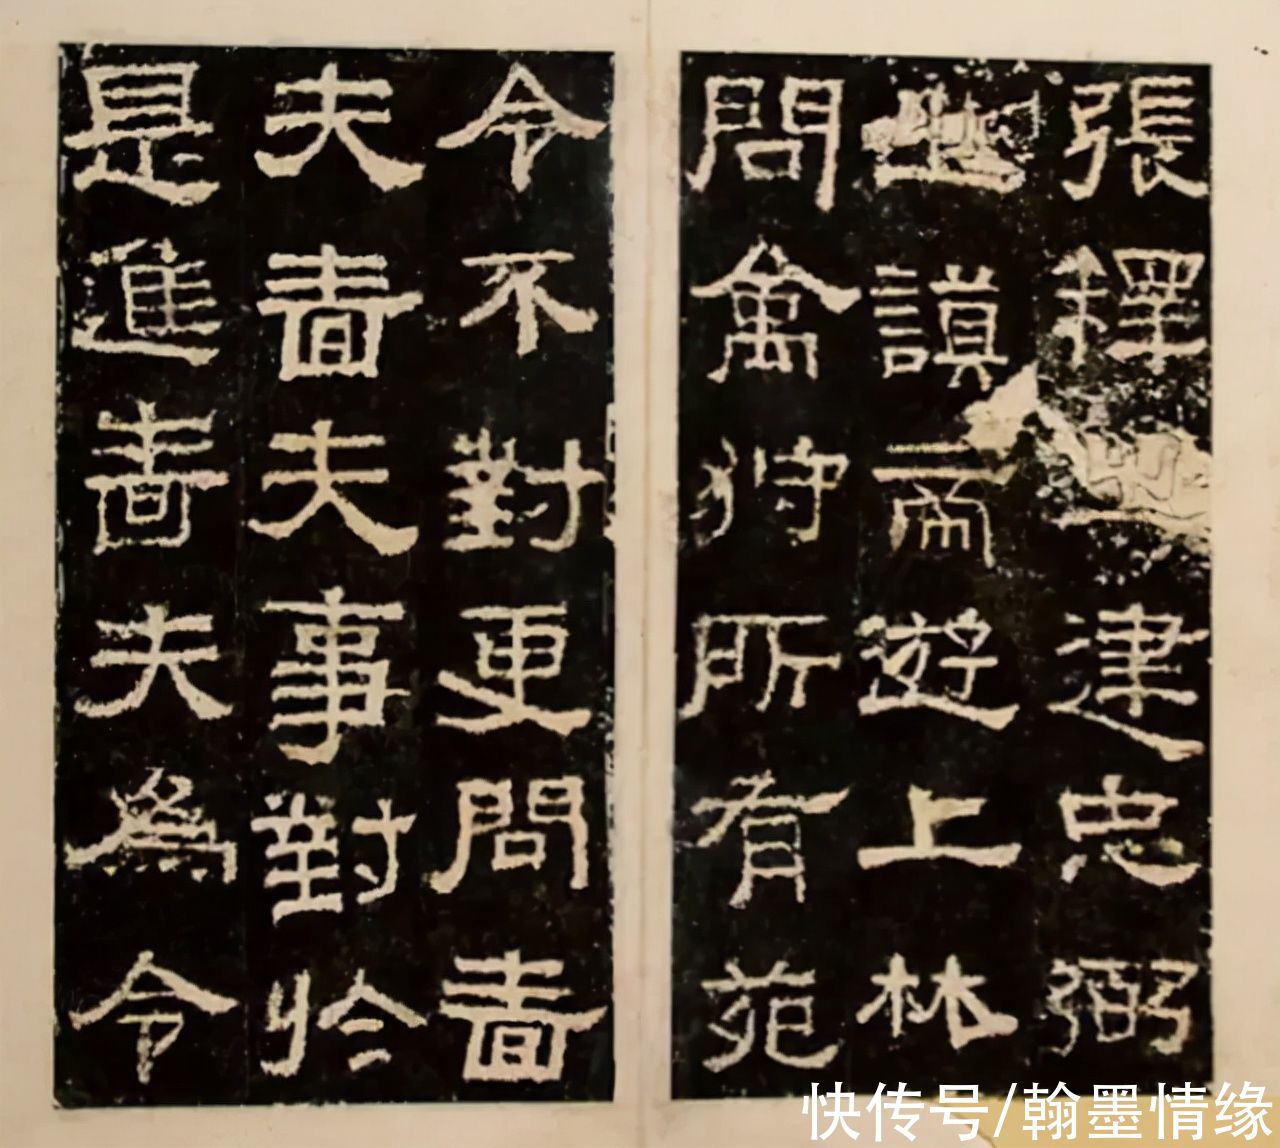 張釋建忠弼
之謨帝遊上林
問禽狩所有苑
令不對更問嗇
夫嗇夫事對於
是進嗇夫為令
快传号/翰墨情缘